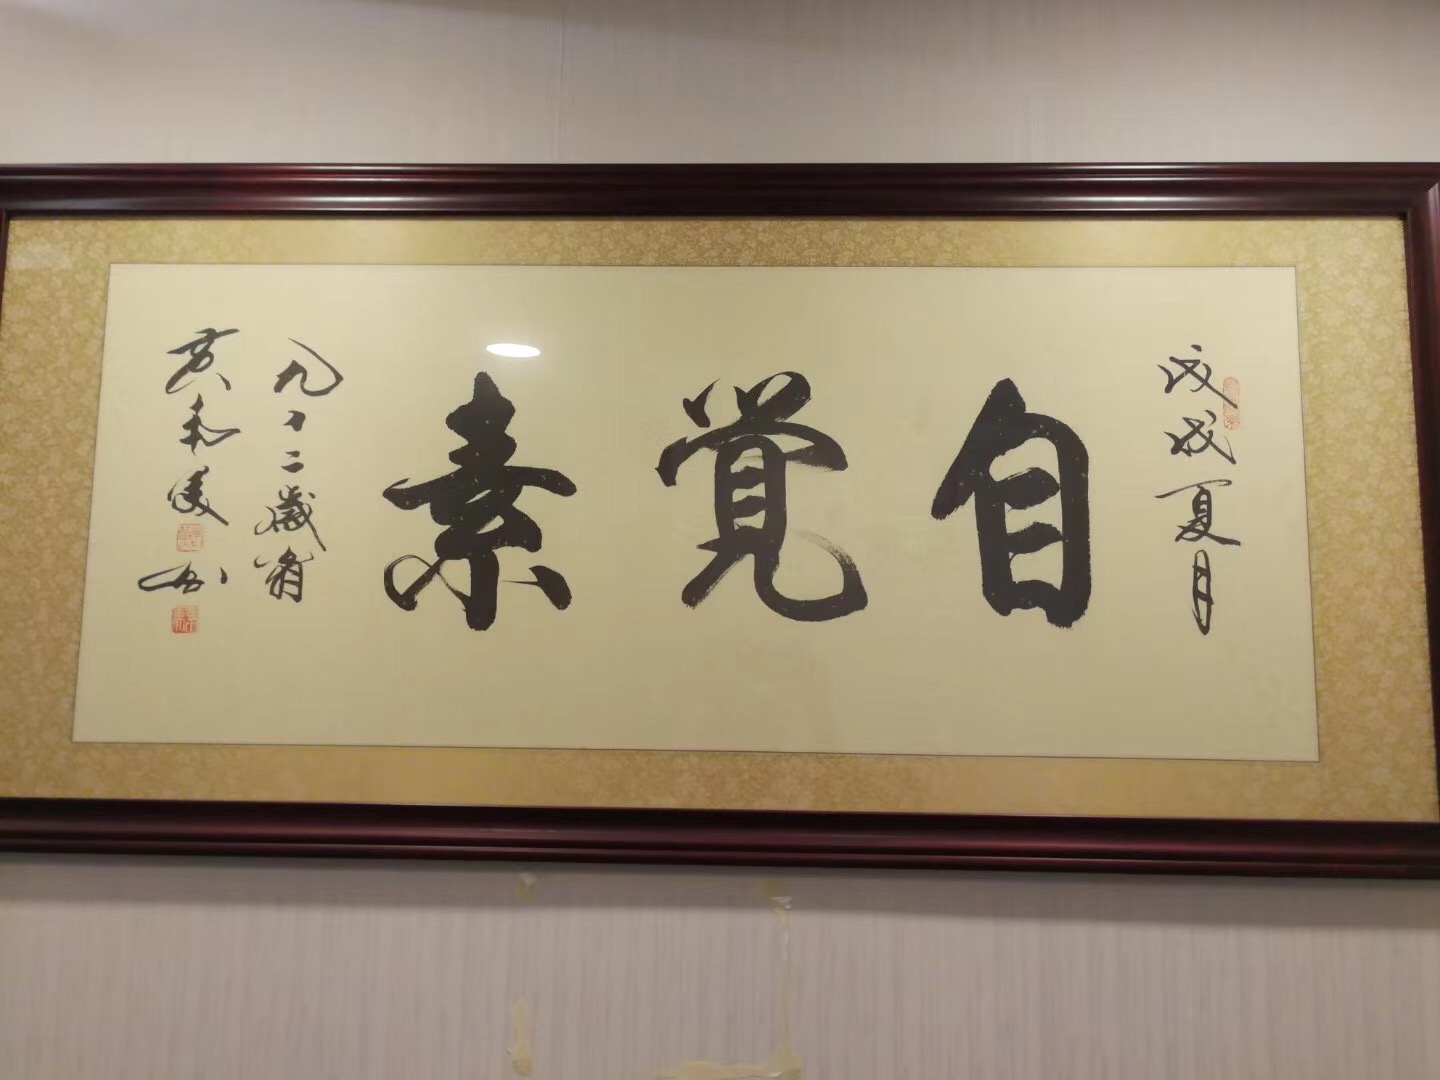 戊戌夏月
自覺素
九十二歲翁
黄和